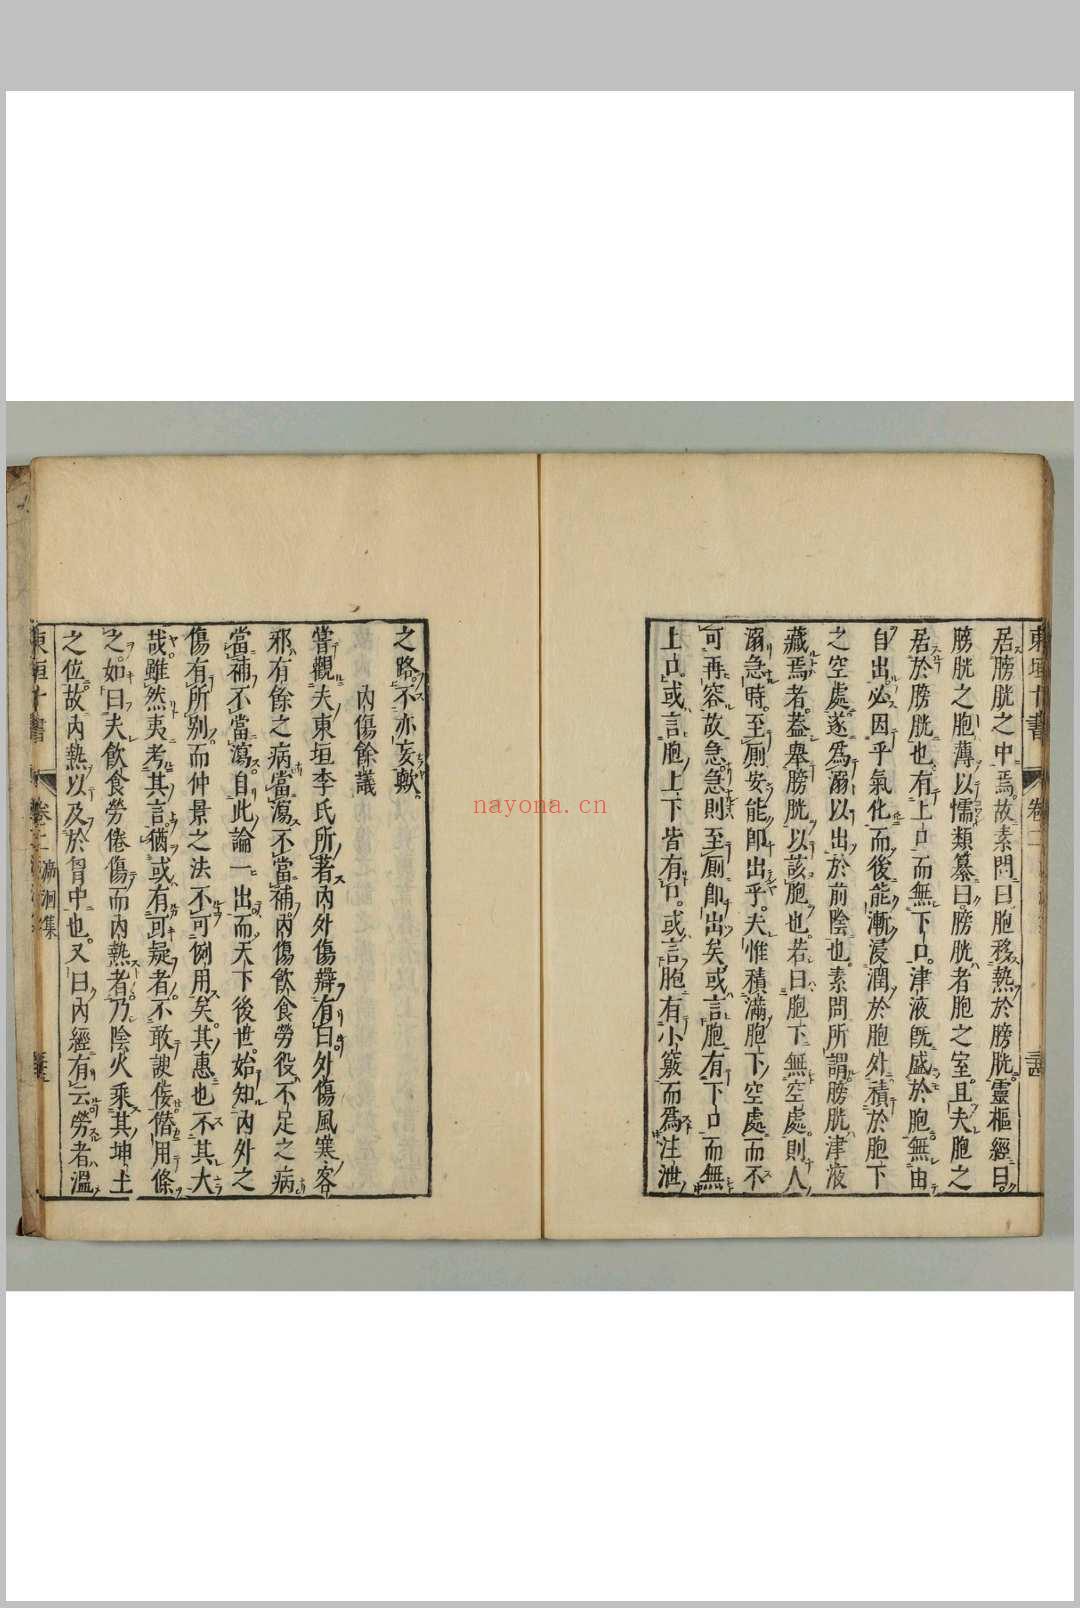 東垣十書
卷二
居膀胱之中焉故素問曰胞移熱於膀胱靈樞經曰
膀胱之胞薄以懦類纂曰膀胱者胞之室且夫胞之
居於膀胱也有上口而無下口津液既盛於胞無由
自出必因乎氣化而後能漸浸潤於胞外積於胞下
之空處遂爲溺以出於前陰也素問所謂膀胱津液
藏焉者蓋舉膀胱以該胞也若曰胞下無空處則人
溺急時至厠安能即出乎夫惟積滿胞下空處而不
可再容故急急則至厠即出矣或言胞有下口而無
上口或言胞上下皆有口或言胞有小竅而爲注泄
之路不亦妄歟
內傷餘議
嘗觀夫東垣李氏所著內外傷辯有曰外傷風寒客
邪有餘之病當瀉不當補內傷飲食勞役不足之病
當補不當瀉自此論一出而天下後世始知內外之
傷有所別而仲景之法不可例用矣其惠也不其大
哉雖然夷考其言猶或有可疑者不敢諛佞僭用條
之如曰夫飲食勞倦傷而內熱者乃陰火乘其坤土
之位故內熱以及於胃中也又曰內經有云勞者溫
東垣十書
卷二
泝洄集
nayona.cn